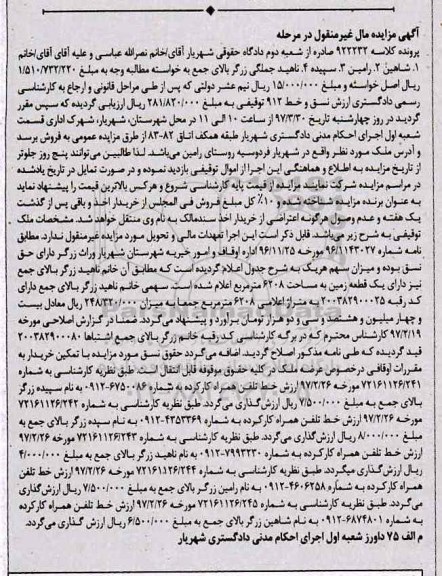 آگهی مزایده مال غیرمنقول در مرحله
پرونده کلاسه ۹۲۲۲۳۲ صادره از شعبه دوم دادگاه حقوقی شهریار آقای/خانم نصرالله عباسی و علیه آقای آقای/خانم
۱. شاهین ۲. رامین ۳. سپیده ۴. ناهید جملگی زرگر بالای جمع به خواسته مطالبه وجه به مبلغ ۱/۵۱۰/۷۳۲/۲۲۰
ریال اصل خواسته و مبلغ ۱۵/۰۰۰/۰۰۰ ریال نیم عشر دولتی که پس از طی مراحل قانونی و ارجاع به کارشناسی
رسمی دادگستری ارزش نسق و خط ۹۱۲ توقیفی به مبلغ ۲۸۱/۸۲۰/۰۰۰ ریال ارزیابی گردیده که سپس مقرر
گردید در روز چهارشنبه تاریخ ۹۷/۳/۳۰ از ساعت ۱۰ الی ۱۱ در محل شهرستان، شهریار، شهرک اداری قسمت
شعبه اول اجرای احکام مدنی دادگستری شهریار طبقه همکف اتاق ۸۲-۸۳ از طرق مزایده عمومی به فروش برسد
و آدرس ملک مورد نظر واقع در شهریار فردوسیه روستای رامین می‌باشد. لذا طالبین می‌توانند پنج روز جلوتر
از تاریخ مزایده به اطلاع و هماهنگی این اجرا از اموال توقیفی بازدید نموده و در صورت تمایل در تاریخ یادشده
در مراسم مزایده شرکت نمایند مزایده از قیمت پایه کارشناسی شروع و هرکس بالاترین قیمت را پیشنهاد نماید
به عنوان برنده مزایده شناخته شده و ۱۰٪ کل مبلغ فروش فی المجلس از خریدار اخذ و باقی پس از گذشت
یک هفته و عدم وصول هرگونه اعتراضی از خریدار اخذ سندمالک به نام وی منتقل خواهد شد. مشخصات ملک
توقیفی به شرح زیر می‌باشد. قابل ذکر است این اجرا تعهدات مالی و تحویل مورد مزایده غیرمنقول ندارد. مطابق
نامه شماره ۹۶/۱۱۴۳۰۲۷ مورخه ۹۶/۱۱/۲۵ اداره اوقاف و امور خیریه شهرستان شهریار وراث زرگر دارای حق
نسق بوده و میزان سهم هریک به شرح جدول اعلام گردیده است که مطابق آن خانم ناهید زرگر بالای جمع
نیز دارای یک قطعه زمین به مساحت ۶۲۰۸ مترمربع اعلام شده است. سهمی خانم ناهید زرگر بالای جمع دارای
کد رقبه ۲۰۰۳۸۲۹۰۰۰۲۵ به متراژ اعلامی ۶۲۰۸ مترمربع جمعا به میزان ۲۴۸/۳۲۰/۰۰۰ ریال معادل بیست
و چهار میلیون و هشتصد و سی و دو هزار تومان برآورد و پیشنهاد می‌گردد. ضمنا در گزارش اصلاحی مورخه
۹۷/۲/۱۹ کارشناس محترم که در برگه کارشناسی کد رقبه خانم زرگر بالای جمع اشتباها ۲۰۰۳۸۲۹۰۰۰۸۰
قید گردیده که طی نامه مذکور اصلاح گردید. اضافه می‌گردد حقوق نسق مورد مزایده با تمکین خریدار به
مقررات اوقافی درخصوص عرصه ملک در کلیه حقوق موقوفه قابل انتقال است. طبق نظریه کارشناسی به شماره
۷۲۱۶۱۱۲۶/۲۴۱ مورخه ۹۷/۲/۲۶ ارزش خط تلفن همراه کارکرده به شماره ۶۷۵۰۰۸۶-۰۹۱۲ به نام سپیده زرگر
بالای جمع به مبلغ ۷/۵۰۰/۰۰۰ ریال ارزش گذاری می‌گردد. طبق نظریه کارشناسی به شماره ۷۲۱۶۱۱۲۶/۲۴۲
مورخه ۹۷/۲/۲۶ ارزش خط تلفن همراه کارکرده به شماره ۴۲۵۳۳۶۹-۰۹۱۲ به نام سپیده زرگر بالای جمع به
مبلغ ۸/۰۰۰/۰۰۰ ریال ارزش‌گذاری می‌گردد. طبق نظریه کارشناسی به شماره ۷۲۱۶۱۱۲۶/۲۴۳ مورخه ۹۷/۲/۲۶
ارزش خط تلفن همراه کارکرده به شماره ۷۹۹۳۲۳۰-۰۹۱۲ به نام ناهید زرگر بالای جمع به مبلغ ۴/۰۰۰/۰۰۰
ریال ارزش‌گذاری میگردد. طبق نظریه کارشناسی به شماره ۷۲۱۶۱۱۲۶/۲۴۴ مورخه ۹۷/۲/۲۶ ارزش خط تلفن
همراه کارکرده به شماره ۴۶۰۶۲۵۸-۰۹۱۲ به نام رامین زرگر بالای جمع به مبلغ ۷/۵۰۰/۰۰۰ ریال ارزش گذاری
می‌گردد. طبق نظریه کارشناسی به شماره ۷۲۱۶۱۱۲۶/۲۴۵ مورخه ۹۷/۲/۲۶ ارزش خط تلفن همراه کارکرده
به شماره ۶۸۷۴۸۰۱-۰۹۱۲ به نام شاهین زرگر بالای جمع به مبلغ ۶/۵۰۰/۰۰۰ ریال ارزش گذاری می‌گردد.
م الف ۷۵ داورز شعبه اول اجرای احکام مدنی دادگستری شهریار